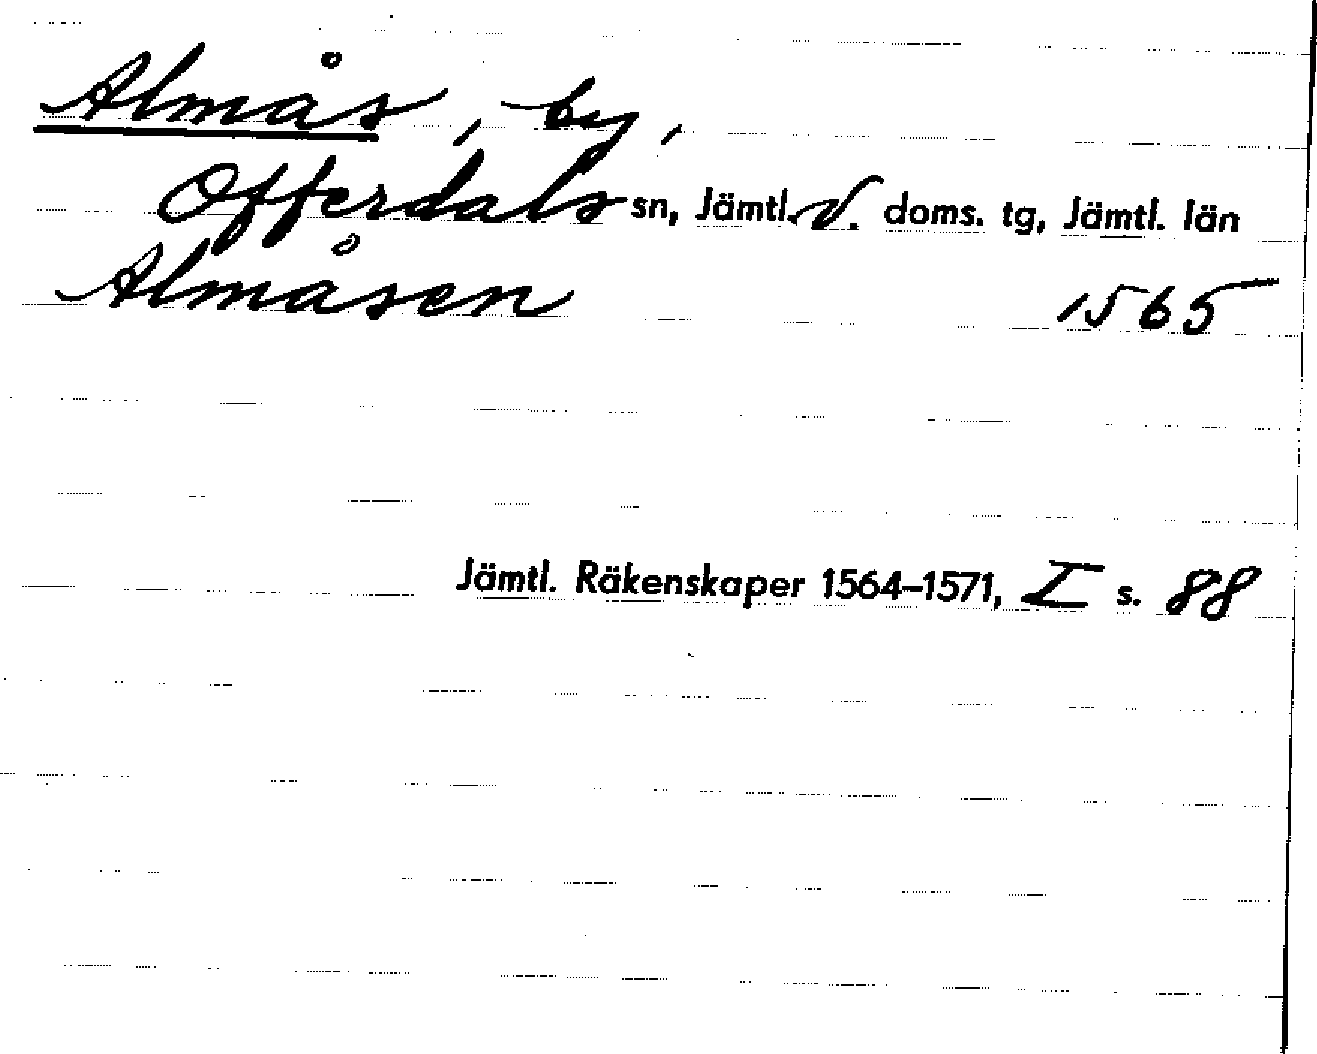 Almås, by,
Offerdals sn, Jämtl. V. doms. tg, Jämtl. län
Almåsen 1565
Jämtl. Räkenskaper 1564–1571, I s. 88